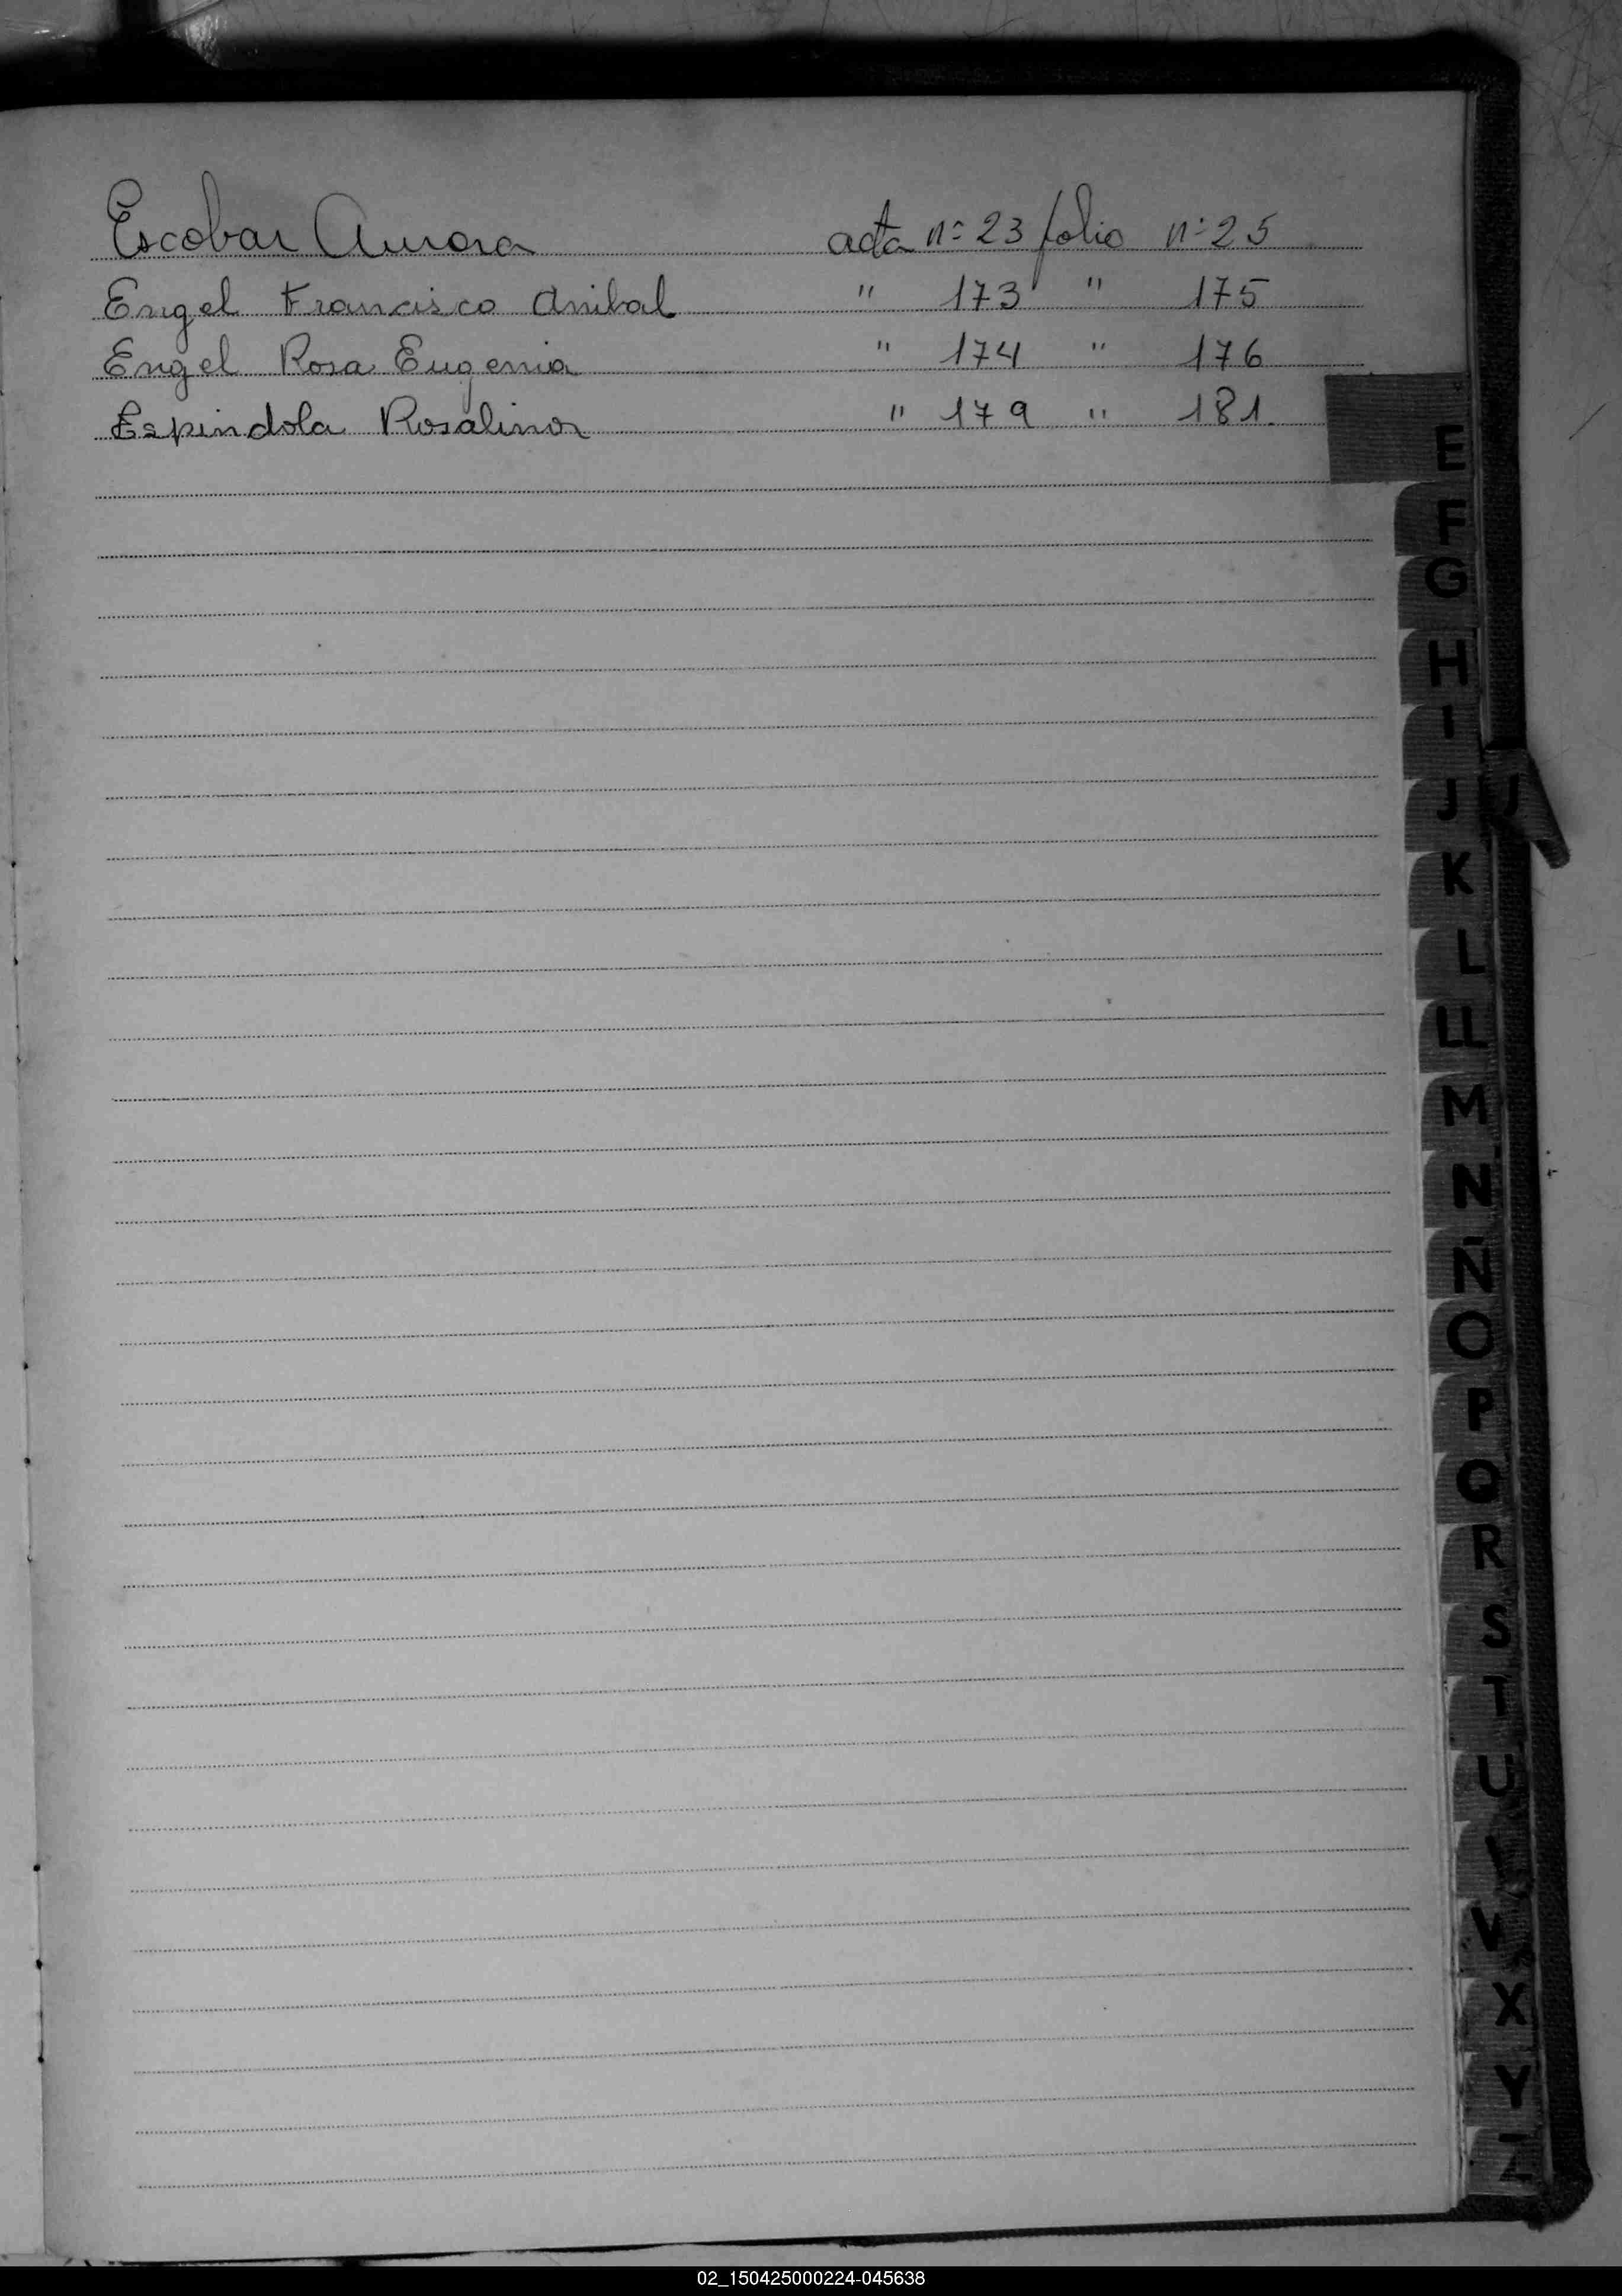 Escobar Aurora acta nº 23 folio nº 25
Engel Francisco Anibal " 173 " 175
Engel Rosa Eugenia " 174 " 176
Espindola Rosalina " 179 " 181.
E
F
G
H
I
J
K
L
LL
M
N
Ñ
O
P
Q
R
S
T
U
V
X
Y
Z
02_150425000224-045638